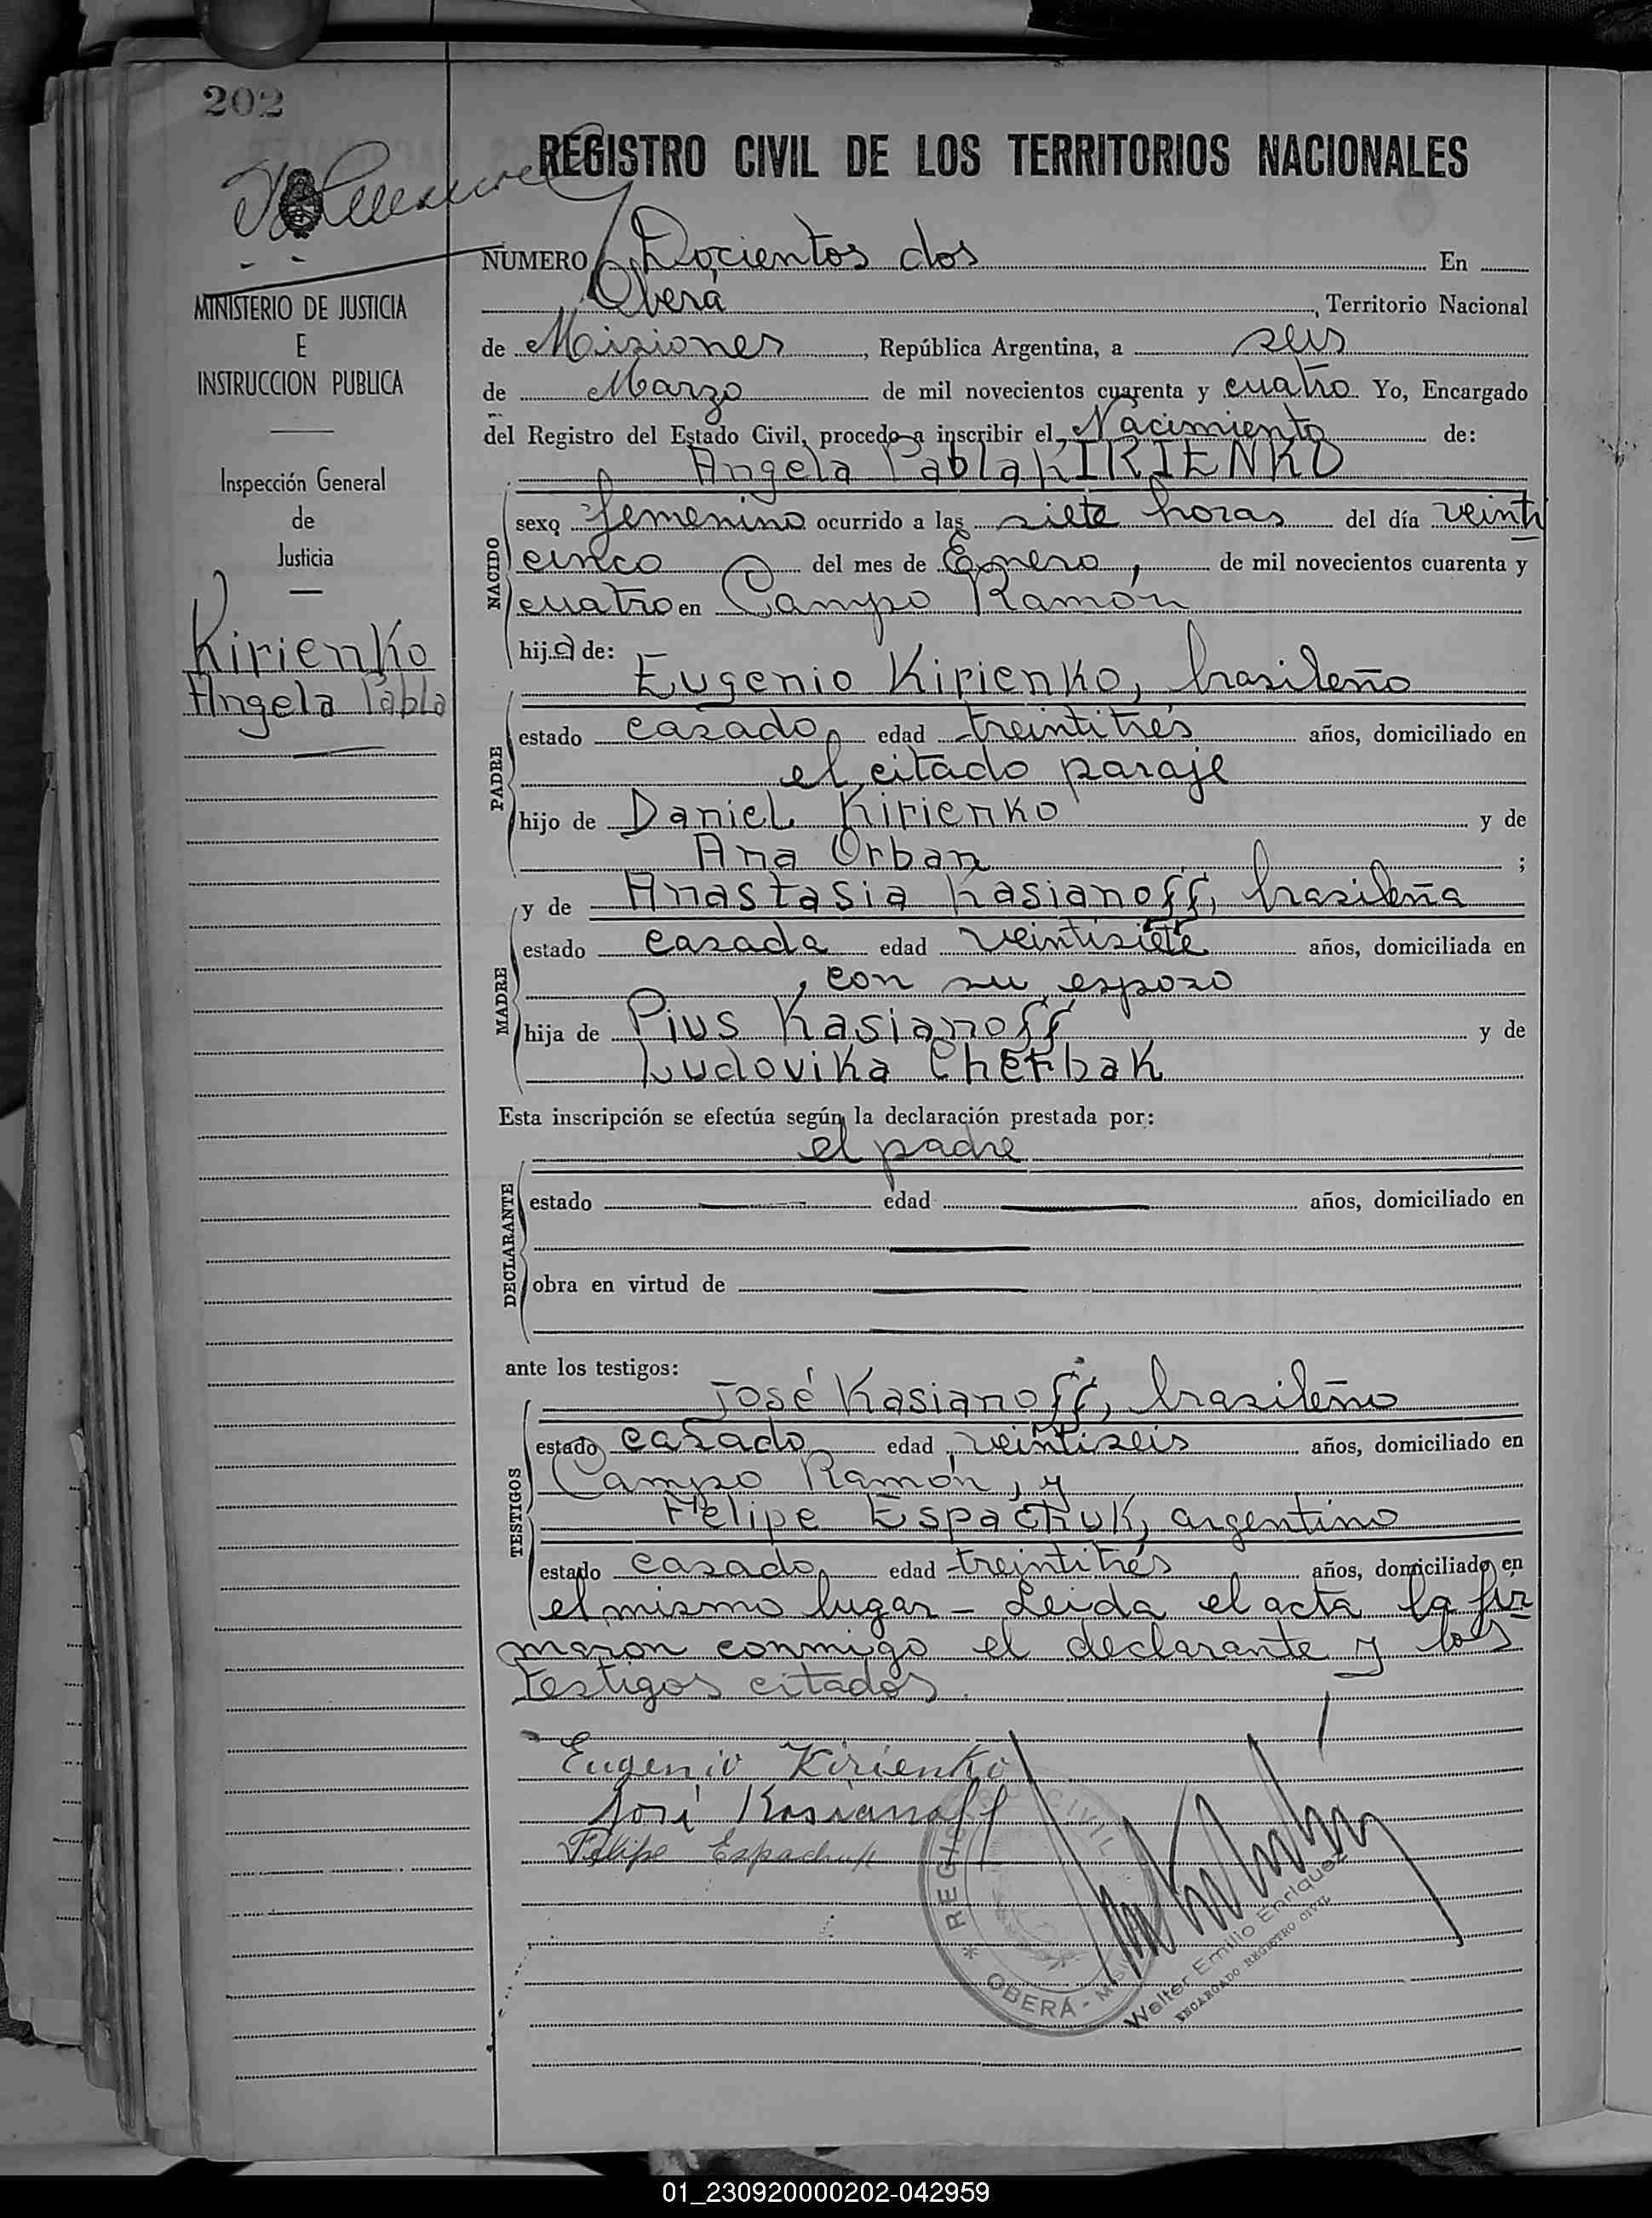 202
REGISTRO CIVIL DE LOS TERRITORIOS NACIONALES
NUMERO Docientos dos En
Oberá, Territorio Nacional
de Misiones, República Argentina, a seis
de Marzo de mil novecientos cuarenta y cuatro Yo, Encargado
del Registro del Estado Civil, procedo a inscribir el Nacimiento de:
Angela Pabla KIRIENKO
NACIDO
sexo femenino ocurrido a las siete horas del día veinti
cinco del mes de Enero, de mil novecientos cuarenta y
cuatro en Campo Ramón
hija de:
MINISTERIO DE JUSTICIA
E
INSTRUCCION PUBLICA
Inspección General
de
Justicia
Kirienko
Angela Pabla
Eugenio Kirienko, brasileño
PADRE
estado casado edad treintitrés años, domiciliado en
el citado paraje
hijo de Daniel Kirienko y de
Ana Orban ;
y de Anastasia Kasianoff, brasileña
MADRE
estado casada edad veintisiete años, domiciliada en
con su esposo
hija de Pius Kasianoff y de
Ludovika Cherbak
Esta inscripción se efectúa según la declaración prestada por:
el padre
DECLARANTE
estado edad años, domiciliado en
obra en virtud de
ante los testigos:
José Kasianoff, brasileño
TESTIGOS
estado casado edad veintiseis años, domiciliado en
Campo Ramón, y
Felipe Espachuk, argentino
estado casado edad treintitrés años, domiciliado en
el mismo lugar - Leida el acta la fir
maron conmigo el declarante y los
testigos citados.
Eugenio Kirienko
José Kasianoff
Felipe Espachuk
* REGISTRO CIVIL
OBERÁ -
Walter Emilio Enriquez
ENCARGADO REGISTRO CIVIL
01_230920000202-042959